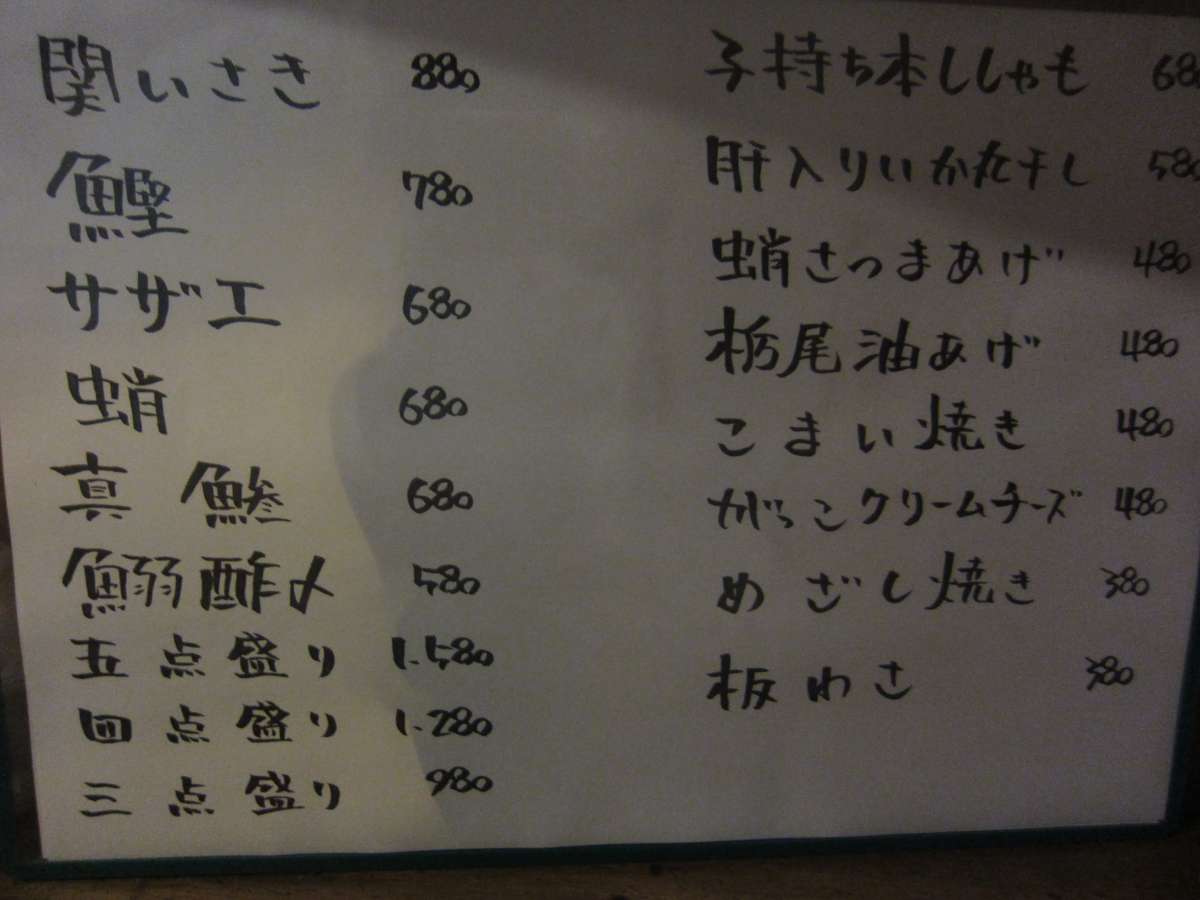 関いさき 880
鰹 780
サザエ 680
蛸 680
真鯵 680
鰯酢〆 580
五点盛り 1.580
四点盛り 1.280
三点盛り 980
子持ち本ししゃも 68
肝入りいか丸干し 580
蛸さつまあげ 480
栃尾油あげ 480
こまい焼き 480
がっこクリームチーズ 480
めざし焼き 380
板わさ 380